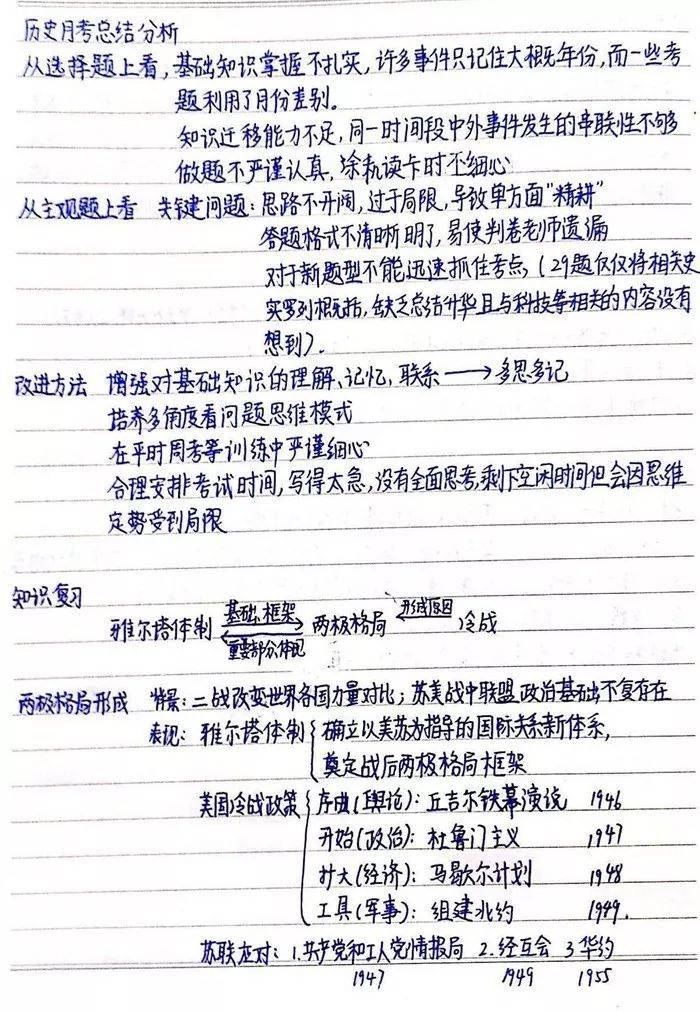 历史月考总结分析
从选择题上看，基础知识掌握不扎实，许多事件只记住大概年份，而一些考
题利用了月份差别。
知识迁移能力不足，同一时间段中外事件发生的串联性不够
做题不严谨认真，涂轨读卡时不细心
从主观题上看 关键建问题：思路不开阔，过于局限，导致单方面“精耕”
答题格式不清晰明了，易使判卷老师遗漏
对于新题型不能迅速抓住考点，（29题仅仅将相关史
实罗列概括，缺乏总结升华且与科技等相关的内容没有
想到）.
改进方法 增强对基础知识的理解、记忆，联系 → 多思多记
培养多角度看问题思维模式
在平时周考等训练中严谨细心
合理安排考试时间，写得太急，没有全面思考，剩下空闲时间但会因思维
定势受到局限
知识复习
雅尔塔体制 基础，框架 重要部分体现 两极格局 形成原因 冷战
两极格局形成 背景：二战改变世界各国力量对比；苏美战中联盟政治基础不复存在
表现：雅尔塔体制 确立以美苏为指导的国际关系新体系，
奠定战后两极格局框架
美国冷战政策 序曲（舆论）：丘吉尔铁幕演说 1946
开始（政治）：杜鲁门主义 1947
扩大（经济）：马歇尔计划 1948
工具（军事）：组建北约 1949.
苏联应对：1.共产党和工人党情报局 2.经互会 3华约
1947 1949 1955